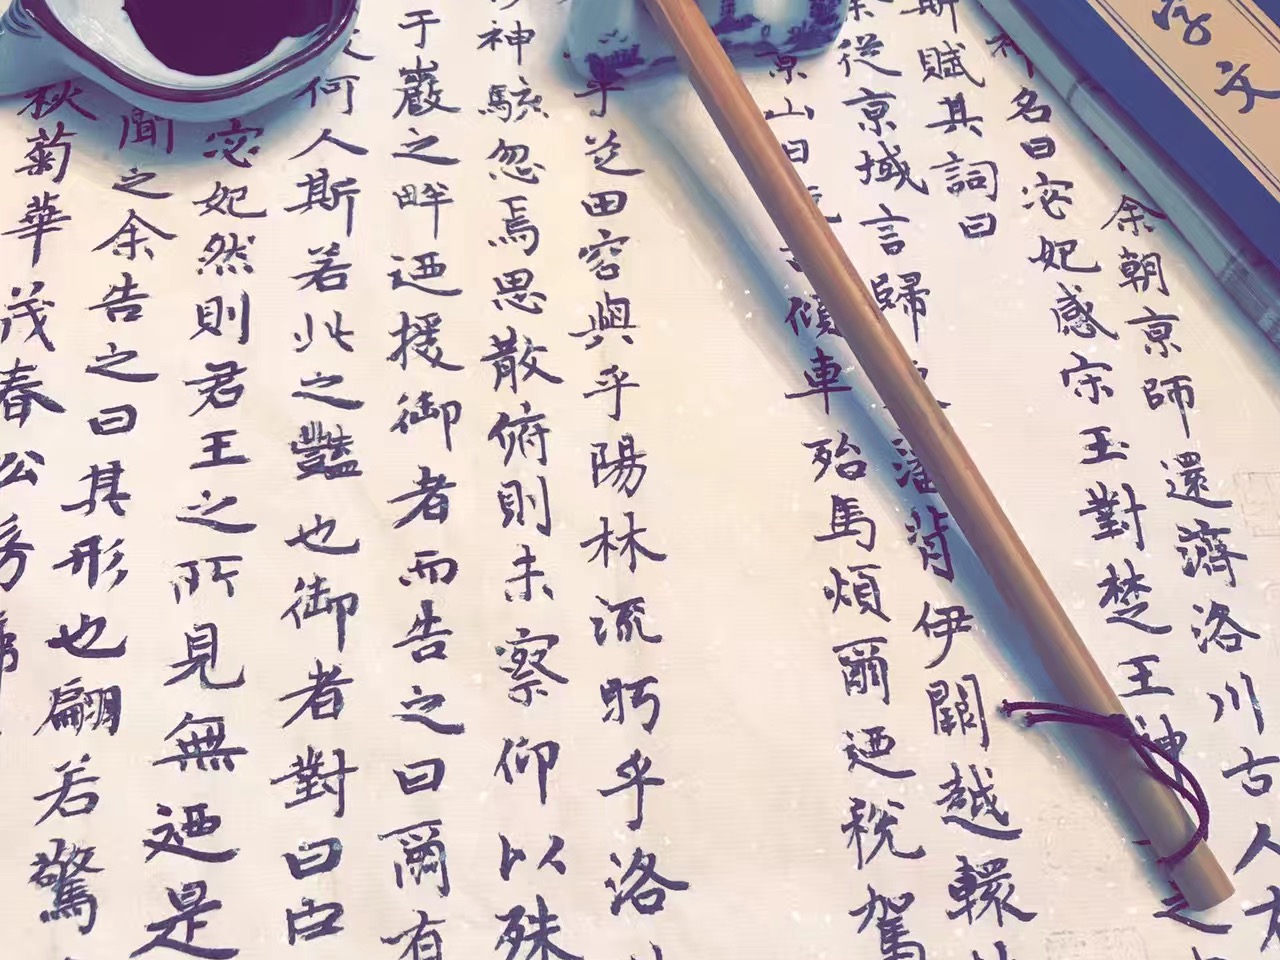 文
余朝京師還濟洛川古人
神名曰宓妃感宋玉對楚王神
斯賦其詞曰
余從京域言歸藩背伊闕越轘
景山日傾車殆馬煩爾迺稅駕
乎芝田容與乎陽林流眄乎洛
神駭忽焉思散俯則未察仰以殊
于巖之畔迺援御者而告之曰爾有
何人斯若此之豔也御者對曰臣
宓妃然則君王之所見無迺是
聞之余告之曰其形也翩若驚
秋菊華茂春